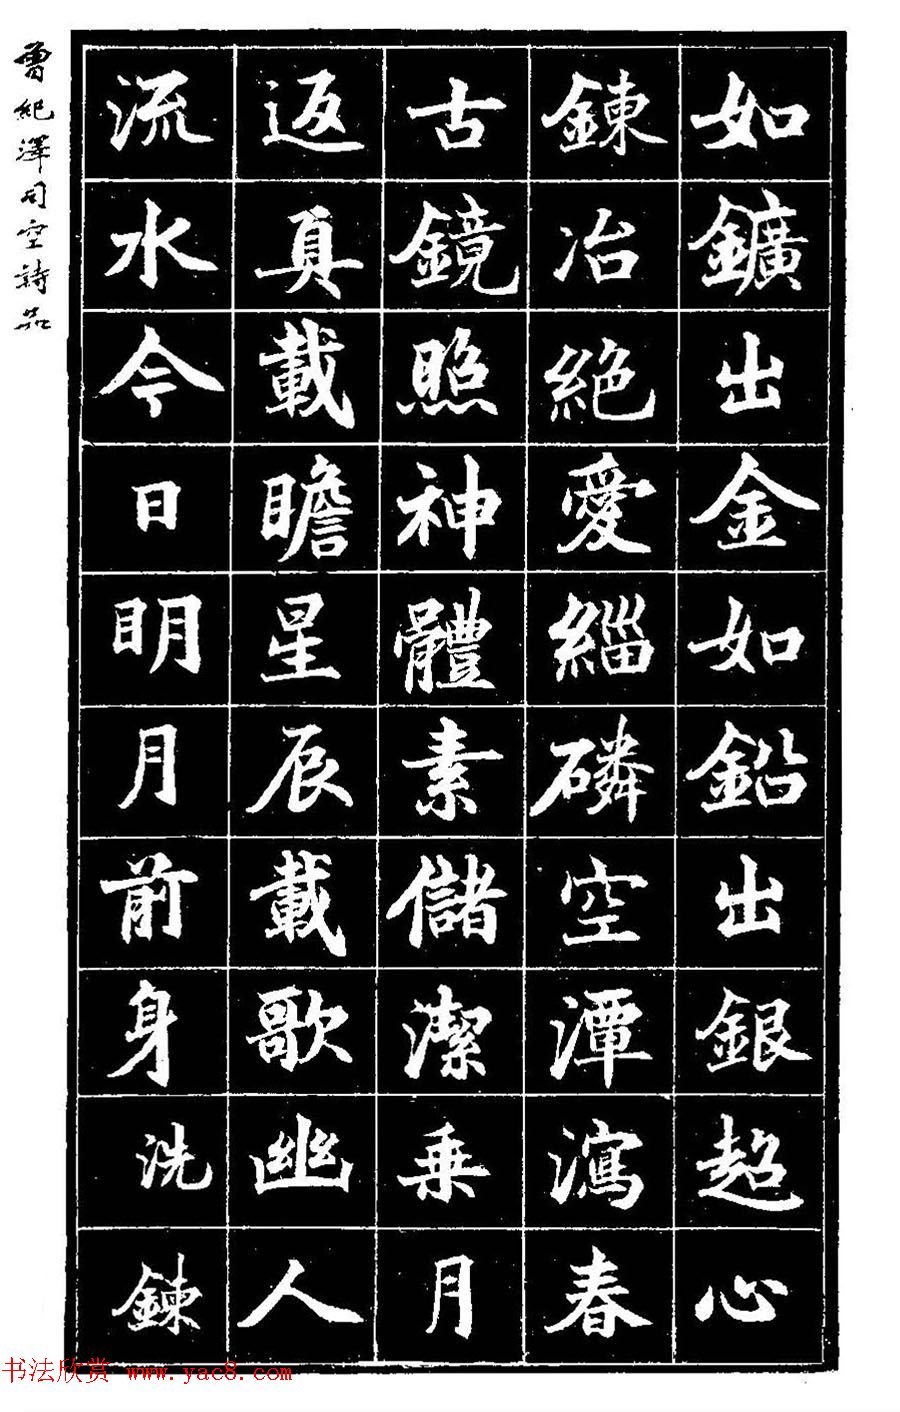 如鑛出金如鉛出銀超心
鍊冶絶愛緇磷空潭瀉春
古鏡照神體素儲潔乗月
返真載瞻星辰載歌幽人
流水今日明月前身洗鍊
曾紀澤司空詩品
书法欣赏 www.yac8.com